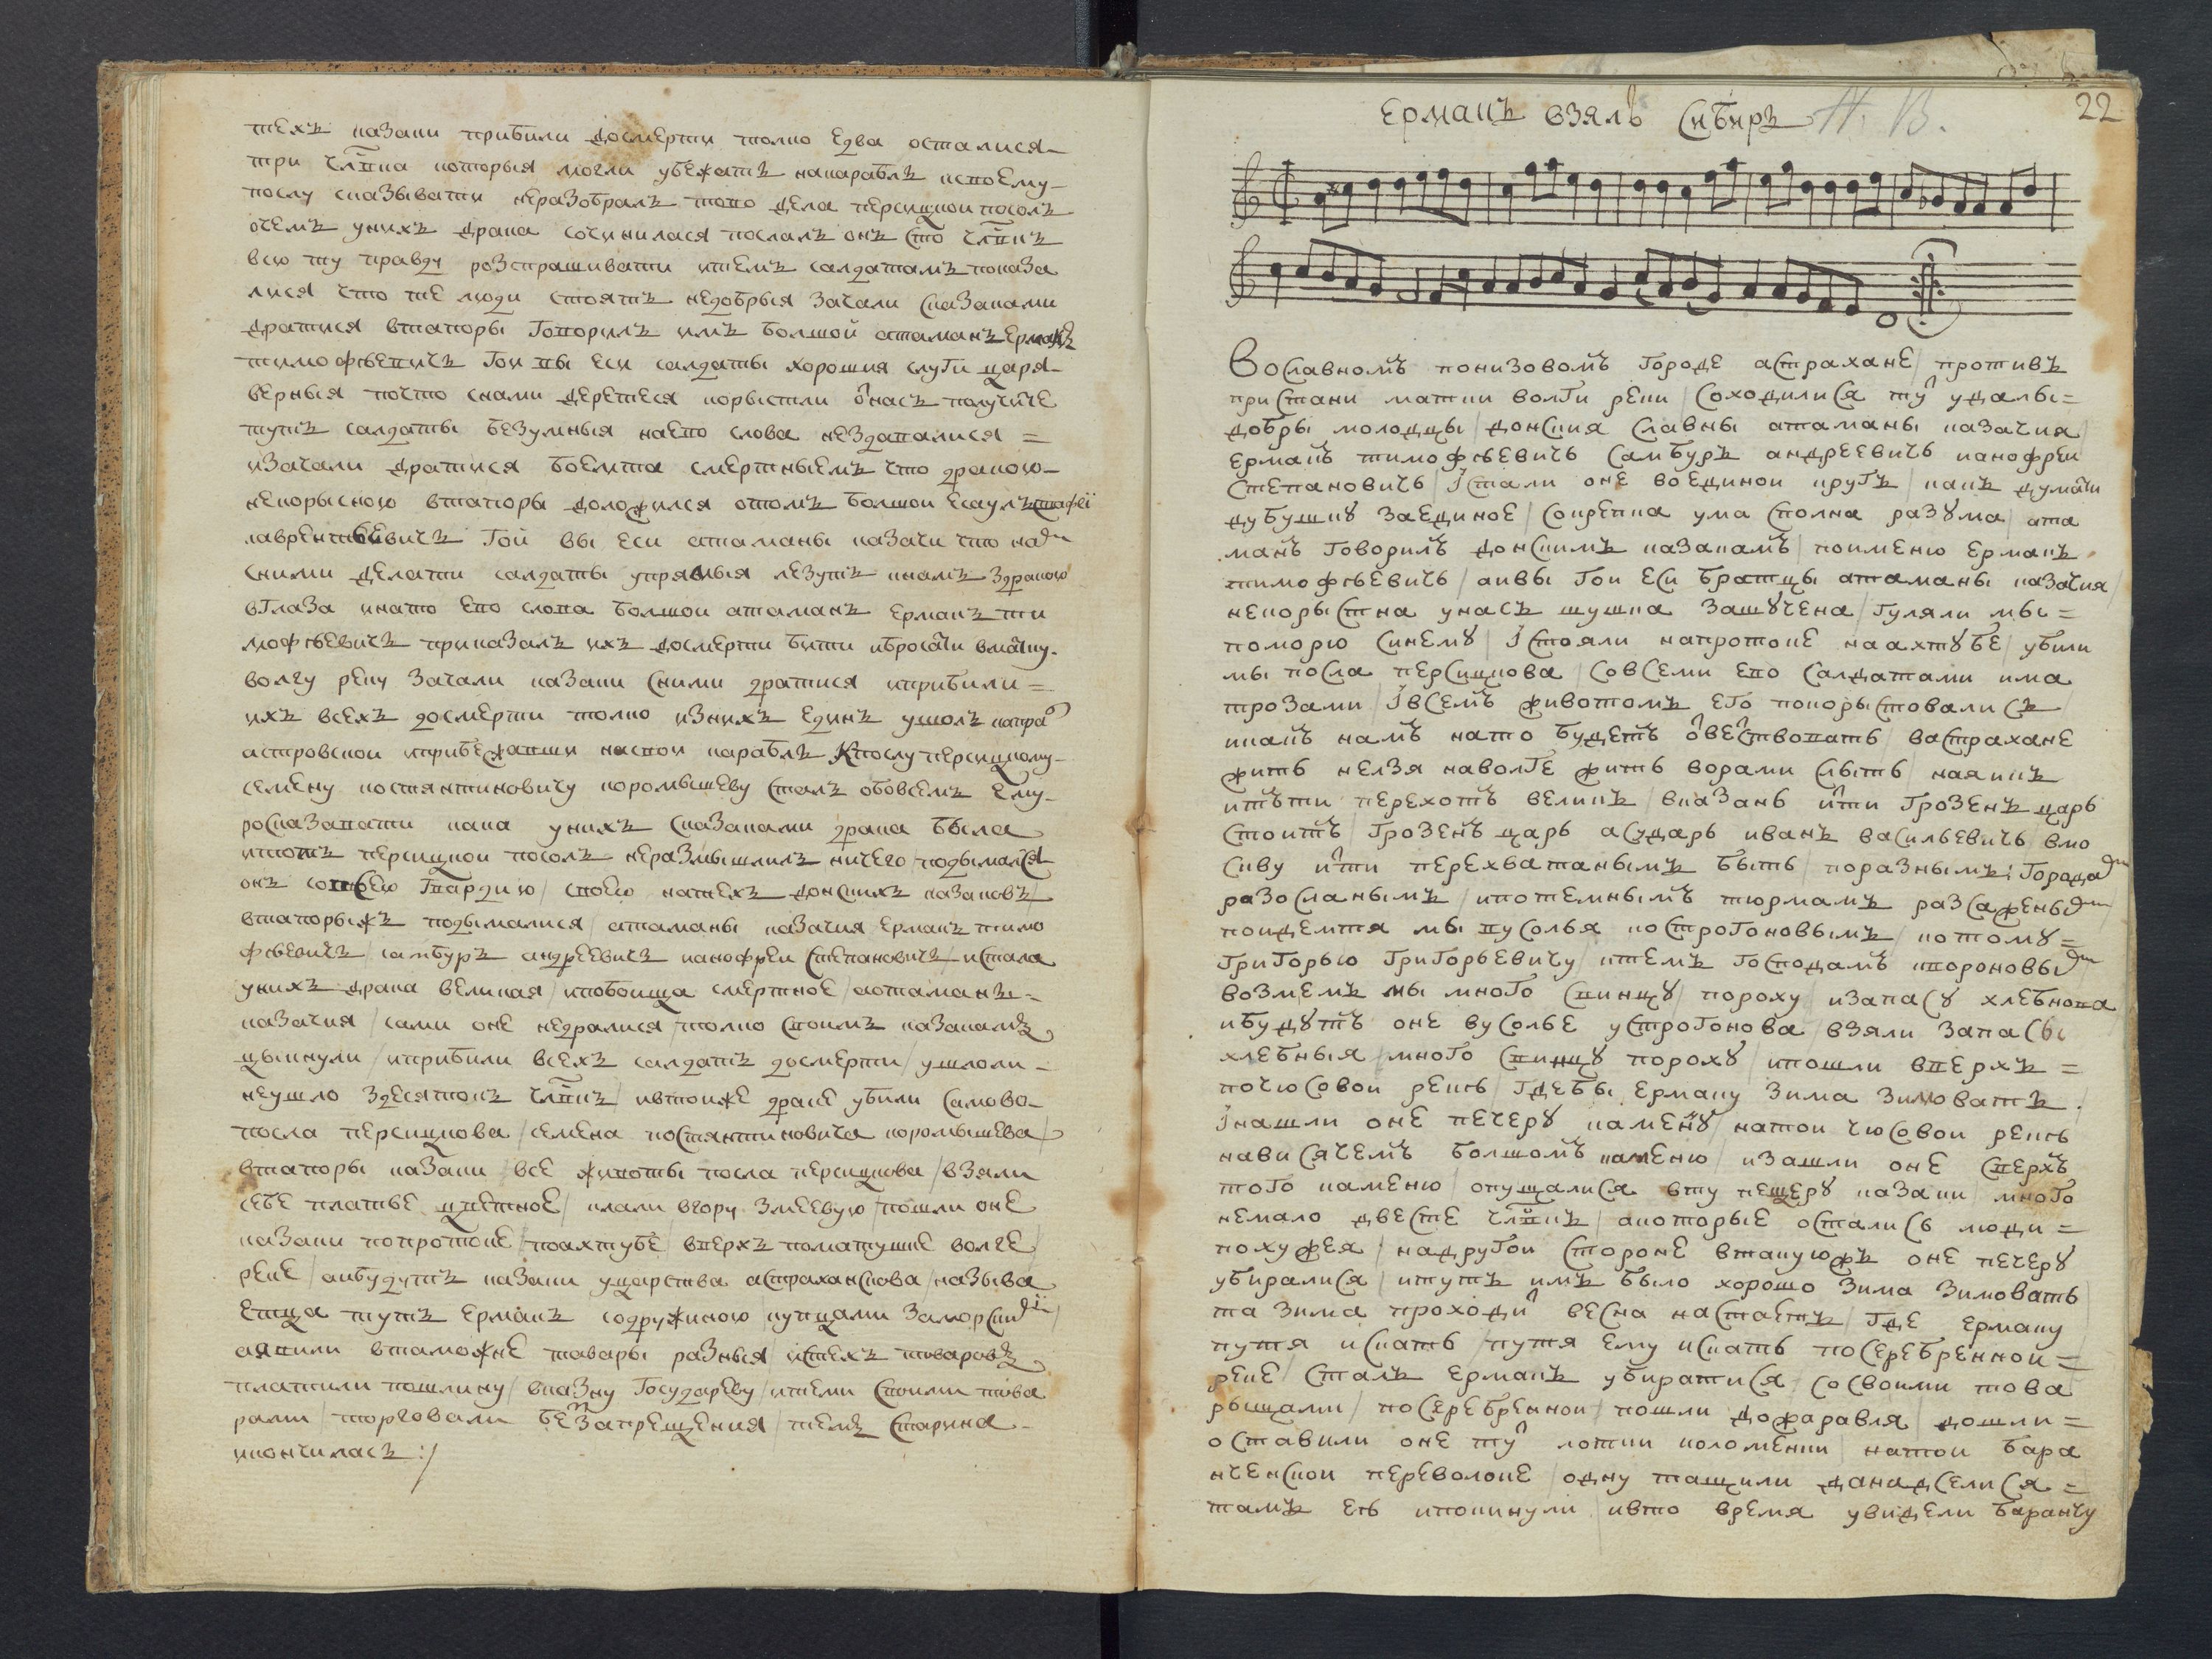 техъ казаки прибили досмерти толко едва осталися
три члвка которыя могли убежать накарабль исвоему
послу сказывати неразобралъ тово дела персицкои посолъ
очемъ унихъ драка сочинилася послалъ онъ сто члвкъ
всю ту правду розспрашивати итемъ салдатамъ показа
лися что те люди стоятъ недобрыя зачали сказаками
дратися втапоры говорилъ имъ болшой атаманъ ермакъ
тимофѣевичъ гои вы еси салдаты хорошия слуги царя
верныя почто снами деретеся корысти ли от насъ получите
тутъ салдаты безумныя наево слова нездавалися =
изачали дратися боемта смертныемъ что дракою
некорысною втапоры доложился отомъ болшои есаулъ стафеи
лаврентьевичъ гой вы еси атаманы казачи что нам
сними делати салдаты упрямыя лезутъ кнамъ здракою
вглаза инато ево слова болшои атаманъ ермакъ ти
мофѣевичъ приказалъ ихъ досмерти бити ибросати вматку
волгу реку зачали казаки сними дратися иприбили =
ихъ всехъ досмерти толко изнихъ единъ ушолъ капра
астровскои иприбежавши насвои карабль кпослу персицкому
семену костянтиновичу коромышеву сталъ обовсемъ ему
росказавати кака унихъ сказаками драка была
итотъ персицкои посолъ неразмышлилъ ничего подымался
онъ совсею гвардию / своею натехъ донскихъ казаковъ /
втапорыжъ подымалися / атаманы казачия ермакъ тимо
фѣевичъ / самбуръ андреевичъ ианофреи степановичъ истала
унихъ драка великая / ипобоища смертное / аатаманы =
казачия / сами оне недралися / толко своимъ казакамъ
цыкнули / иприбили всехъ салдатъ досмерти / ушлоли =
неушло здесятокъ члвкъ / ивтоиже драке убили самово
посла персицкова / семена костянтиновича коромышева /
втапоры казаки / все животы посла персицкова / взяли
себе платье цветное / клали вгору змеевую / пошли оне
казаки попротоке / поахтубе / вверхъ поматушке волге /
реке / аибудутъ казаки уцарства астраханскова / называ
етца тутъ ермакъ содружиною купцами заморскими /
аявили втаможне тавары разныя истехъ товаровъ
платили пошлину / вказну государеву / итеми своими това
рами / торговали беззапрещения / темъ старина
икончилась :/

ермакъ взялъ сибирь N. 13. 22
Вославномъ понизовомъ городе астрахане / противъ
пристани матки волги реки / соходилися тут удалы =
добры молодцы / донския славны атаманы казачия /
ермакъ тимофѣевичь самбуръ андреевичь ианофреи
степановичь / истали оне воединои кругъ / какъ думати
думушку заединое / сокрепка ума сполна разума / ата
манъ говорилъ донскимъ казакамъ / поименю ермакъ
тимофѣевичь / аивы гои еси братцы атаманы казачия /
некорыстна унасъ шушка зашучена / гуляли мы =
поморю синему / истояли напротоке наахтубе / убили
мы посла персицкова / совсеми ево салдатами има
трозами / ивсемъ животомъ его покорыстовались
икакъ намъ нато будетъ ответствовать / вастрахане
жить нелзя наволге жить ворами слыть / наяикъ
ититти переходъ великъ / вказань итти грозенъ царь
стоитъ / грозенъ царь асударь иванъ васильевичь / вмо
скву итти перехватанымъ быть / поразнымъ городам
разосланымъ / ипотемнымъ тюрмамъ разсаженым /
поидемтя мы вусолья кострогоновымъ / ктому =
григорью григорьевичу / ктемъ господамъ квороновым
возмемъ мы много свинцу / пороху / изапасу хлебнова
ибудутъ оне вусолье устрогонова / взяли запасы
хлебныя / много свинцу пороху / ипошли вверхъ =
почюсовои рекѣ / гдебы ермаку зима зимовать.
инашли оне печеру каменну / натои чюсовои рекѣ
нависячемъ болшомъ каменю / изашли оне сверхъ
того каменю / опущалися вту пещеру казаки / много
немало двесте члвкъ / акоторые остались люди =
похужея / надругои стороне втакуюжъ оне печеру
убиралися / итутъ имъ было хорошо зима зимовать
та зима проходит весна настаетъ / где ермаку
путя искать / путя ему искать посеребреннои =
реке / сталъ ермакъ убиратися / сосвоими това
рыщами / посеребреннои / пошли дожаравля / дошли =
оставили оне тут лотки коломенки / натои бара
нченскои переволоке / одну тащили данадселися =
тамъ еѣ ипокинули / ивто время увидели баранчу